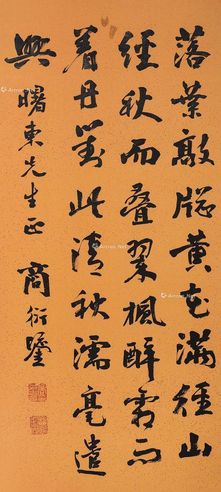 落葉敲牕黃花滿徑山
經秋而叠翠楓醉霜而
着丹對此清秋濡毫遣
興 曙東先生正 商衍鎏